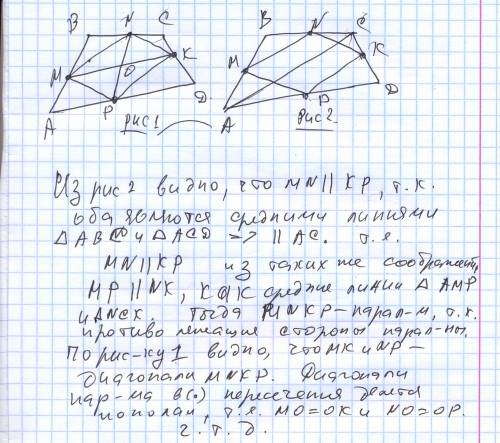 B N C
M O K
A P D
рис 1
B N C
M K
A P D
рис 2
Из рис 2 видно, что MN || KP, т.к.
оба являются средними линиями
△ABC и △ACD => || AC. т.е.
MN || KP из таких же соображений
MP || NK, как средние линии △ AMP
и △NCK. Тогда MNKP – парал-м, т.к.
противолежащие стороны парал-ны.
По рис-ку 1 видно, что MK и NP –
диагонали MNKP. Диагонали
пар-ма в (.) пересечения делятся
пополам, т.е. MO=OK и NO=OP.
ч.т.д.